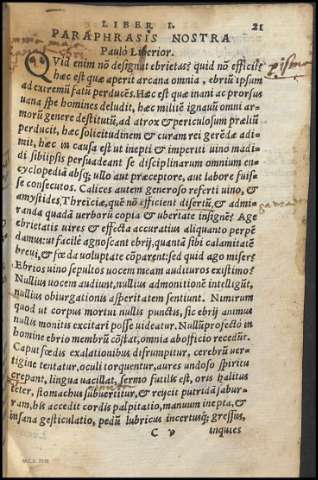 LIBER I. 21
PARAPHRASIS NOSTRA
Pauló Liberior.
QVid enim nõ designat ebrietas? quid nõ efficit?
hæc est quæ aperit arcana omnia, ebriũ ipsum
ad extremũ fatũ perducẽs. Hæc est quæ inani ac prorsus
uana spe homines deludit, hæc militẽ ignauũ omni ar-
morũ genere destitutũ, ad atrox & periculosum prælium
perducit, hæc solicitudinem & curam rei gerẽdæ adi-
mit, hæc in causa est ut inepti & imperiti uino madi-
di sibiipsis persuadeant se disciplinarum omnium en-
cyclopediã absq; ullo aut præceptore, aut labore fuis-
se consecutos. Calices autem generoso referti uino, &
amystides, Threiciæ, quẽ nõ efficient disertũ, & ad-
miranda quadã uerborũ copia & ubertate insignẽ? Age
ebrietatis uires & effecta accuratius aliquanto perpẽ
damus: ut facilè agnoscant ebrij, quantã sibi calamitatẽ
breui, & fœda uoluptate cõparent: sed quid ago miser?
Ebrios uino sepultos uocem meam audituros existimo?
Nullius uocem audiunt, nullius admonitionẽ intelligũt,
nullius obiurgationis asperitatem sentiunt. Nimirum
quod ut corpus mortui nullis punctis, sic ebrij animus
nullis monitis excitari posse uideatur. Nullũ profectò in
homine ebrio membrũ cõstat, omnia ab officio recedũt.
Caput fœdis exalationibus disrumpitur, cerebrũ uer-
tigine tentatur, oculi torquentur, aures undoso spiritu
crepant, lingua uacillat, sermo futilis est, oris halitus
teter, stomachus subuertitur, & reijcit putridã sabur-
ram, his accedit cordis palpitatio, manuum inepta, &
insana gesticulatio, pedũ lubricus incertusq; gressus,
C v inquies